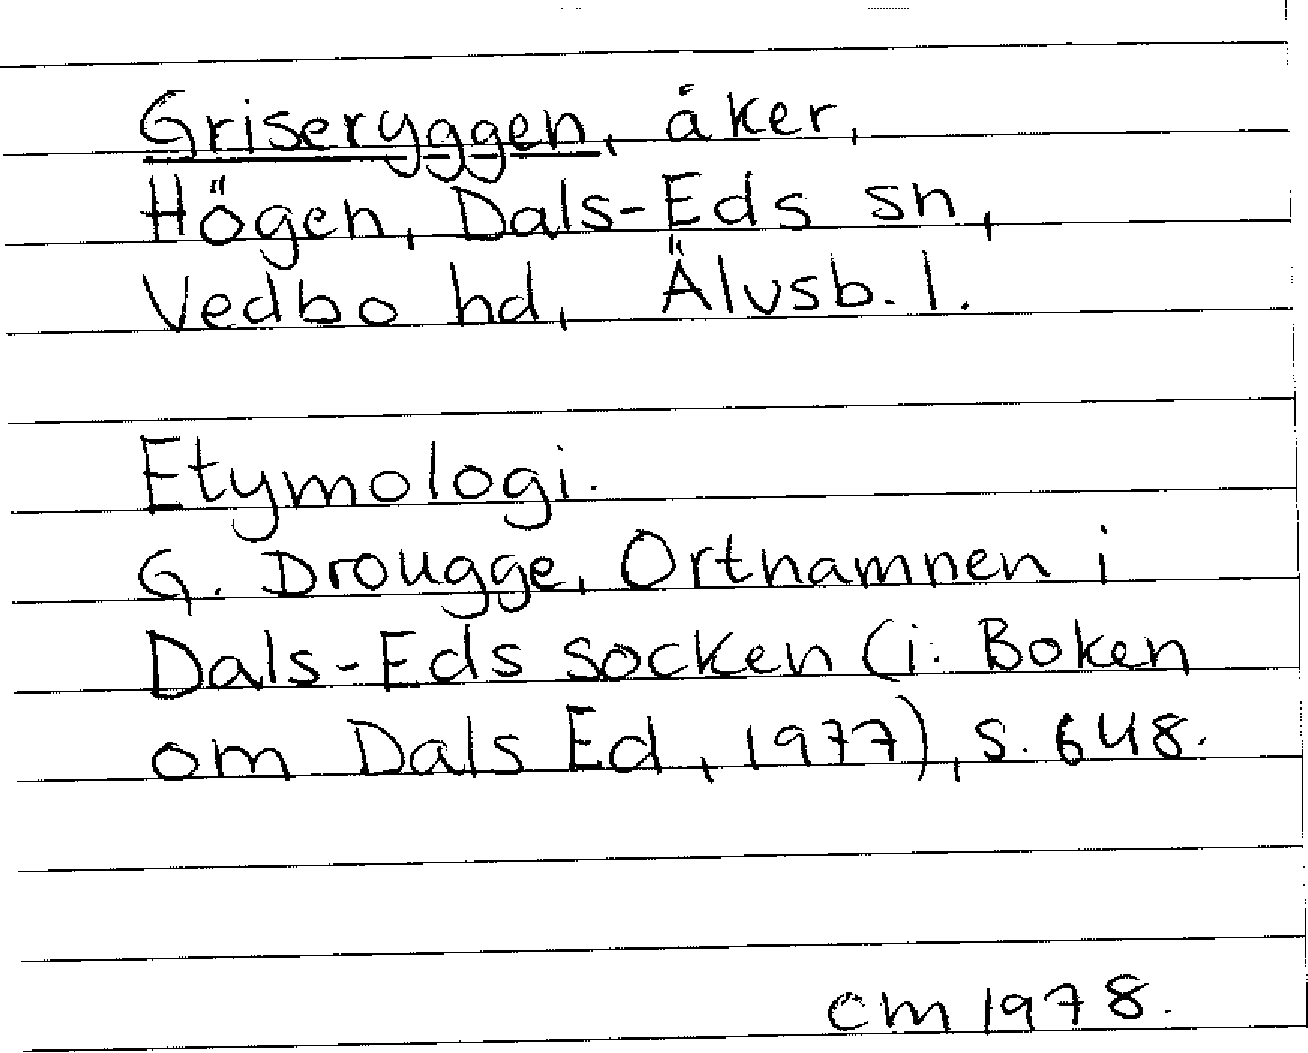 Griseryggen, åker,
Högen, Dals-Eds sn,
Vedbo hd, Älvsb. l.
Etymologi.
G. Drougge, Ortnamnen i
Dals-Eds socken (i: Boken
om Dals Ed, 1977), s. 648.
CM 1978.